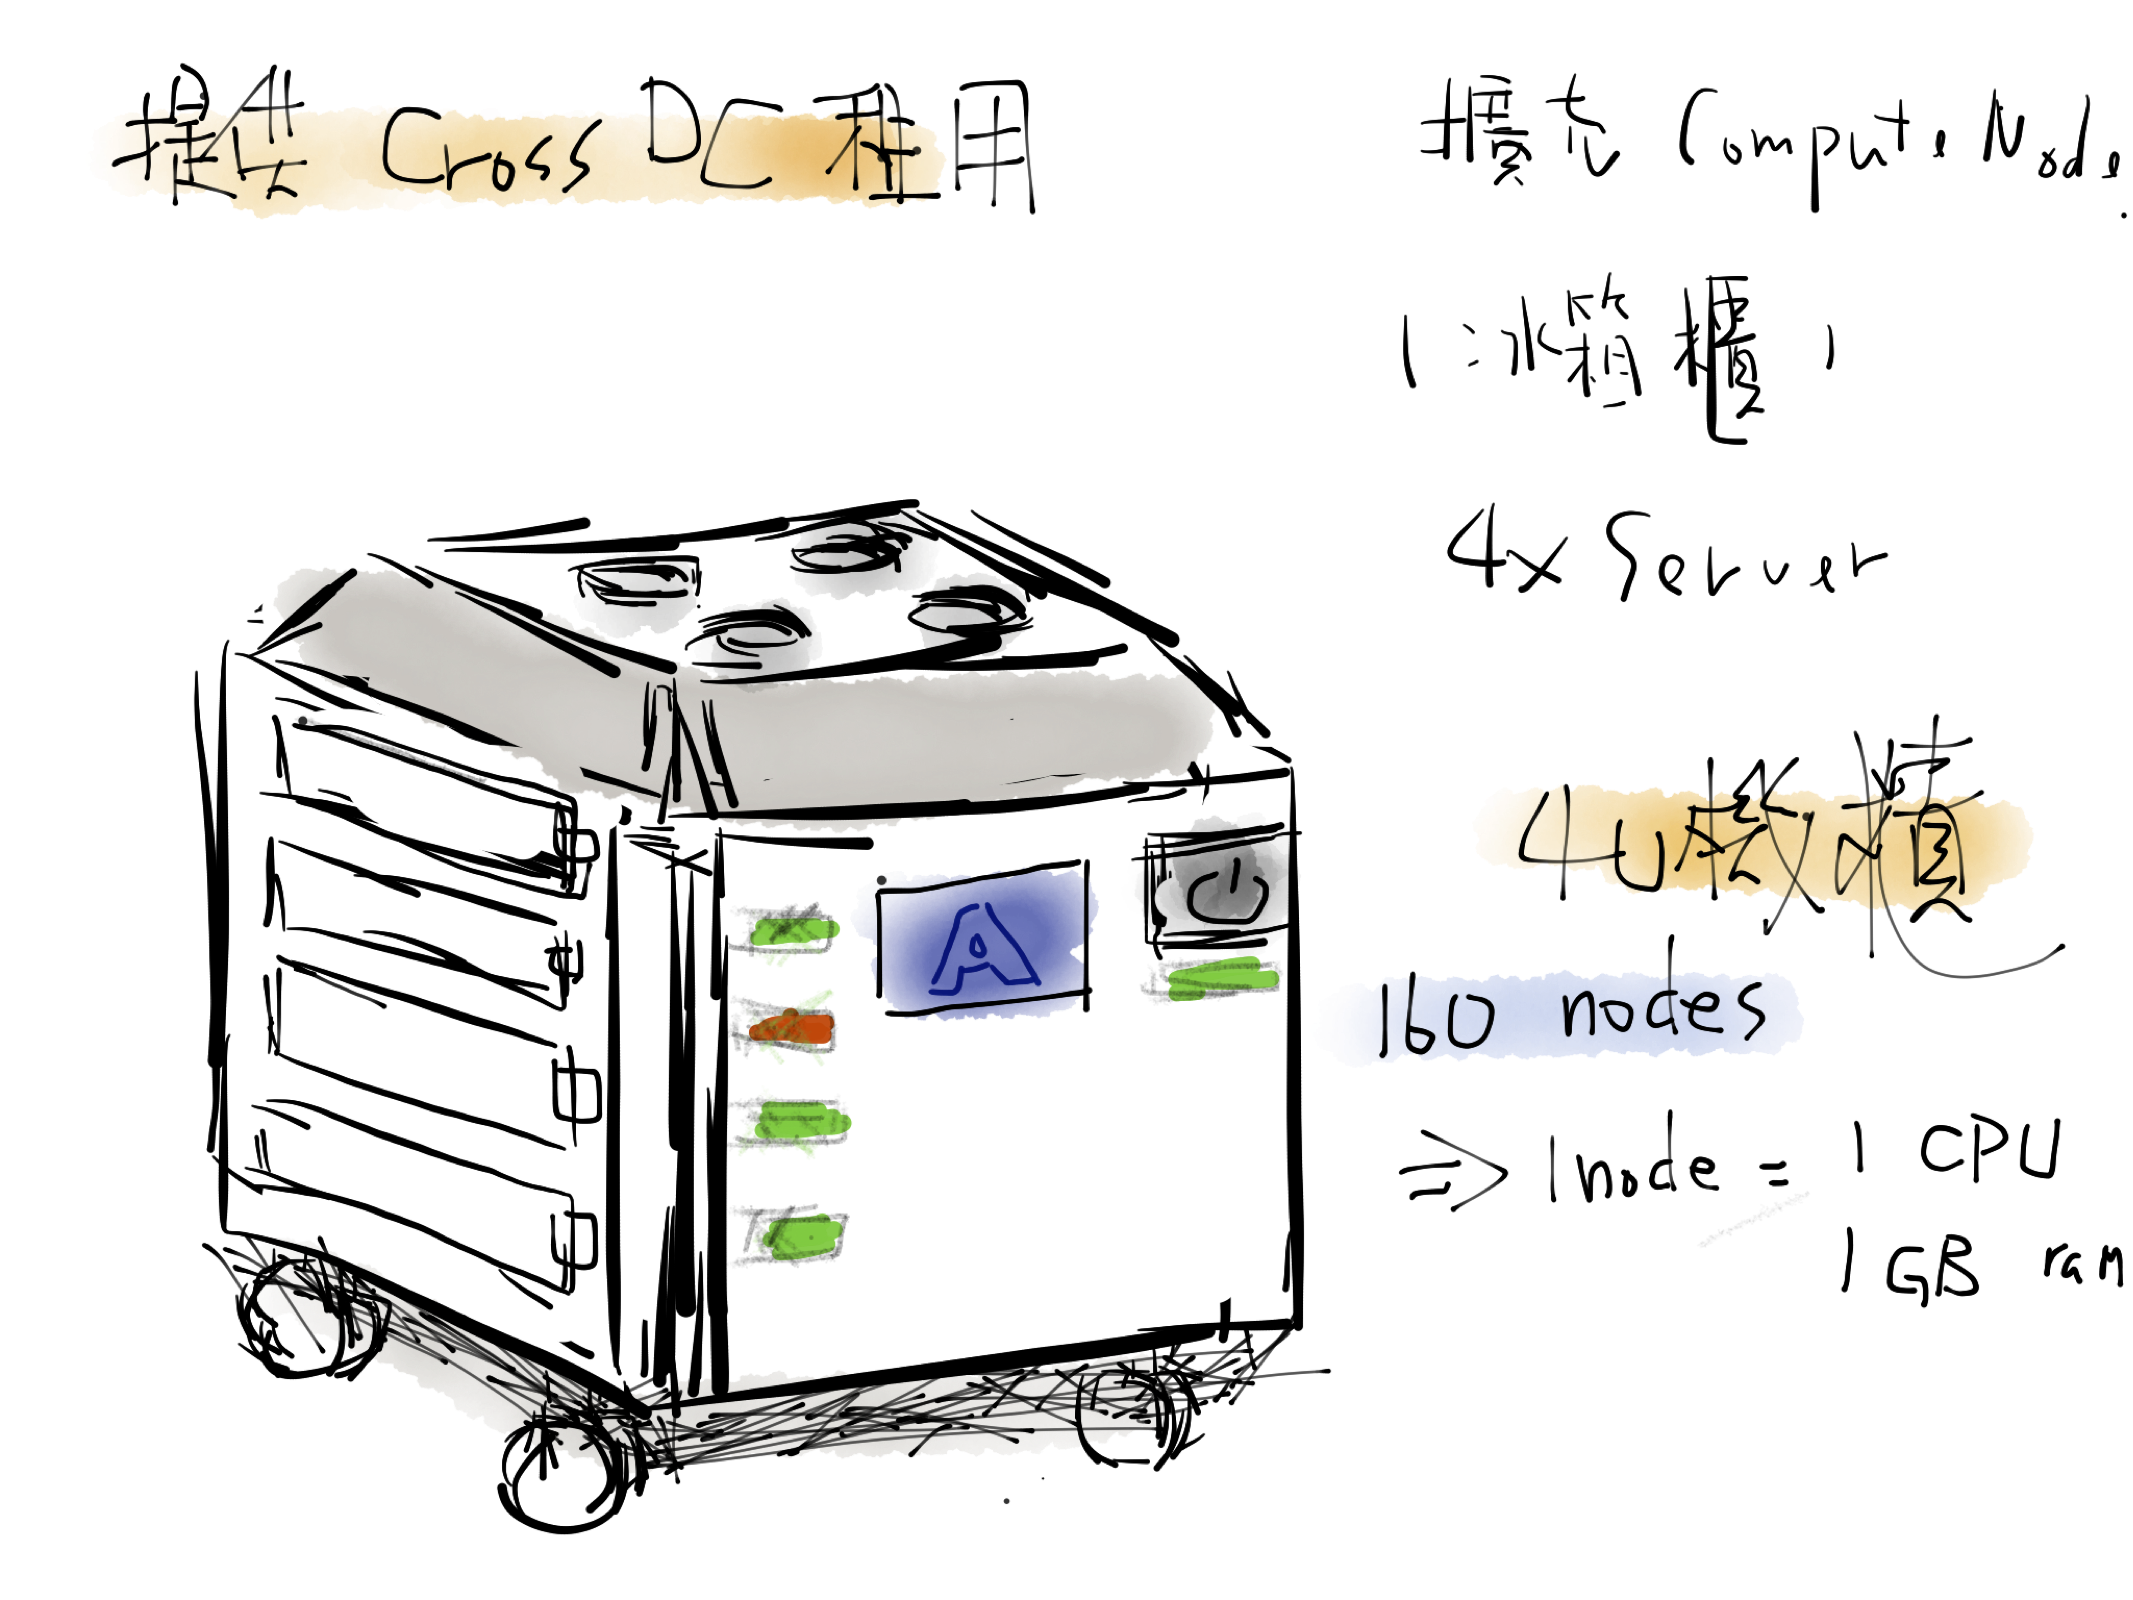 提供 Cross DC 租用
擴充 Compute Node.
(冰箱櫃)
4x Server
4U
160 nodes
A
⇒ 1 node = 1 CPU
1 GB ram